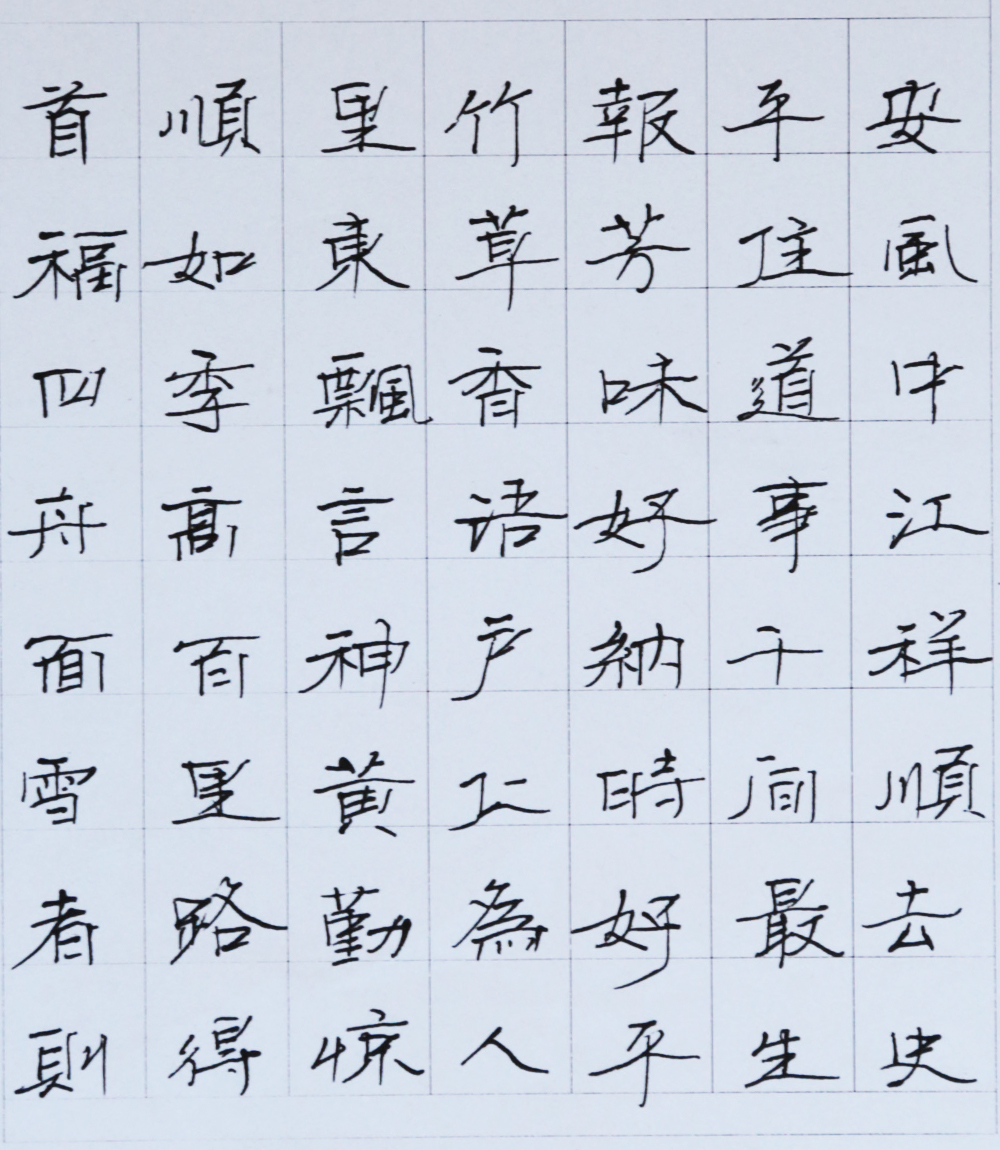 首順里竹報平安
福如東草芳佳風
四季飄香味道中
舟高言语好事江
面百神戶納千祥
雪里黃上時雨順
者路勤為好最去
則得惊人平生史